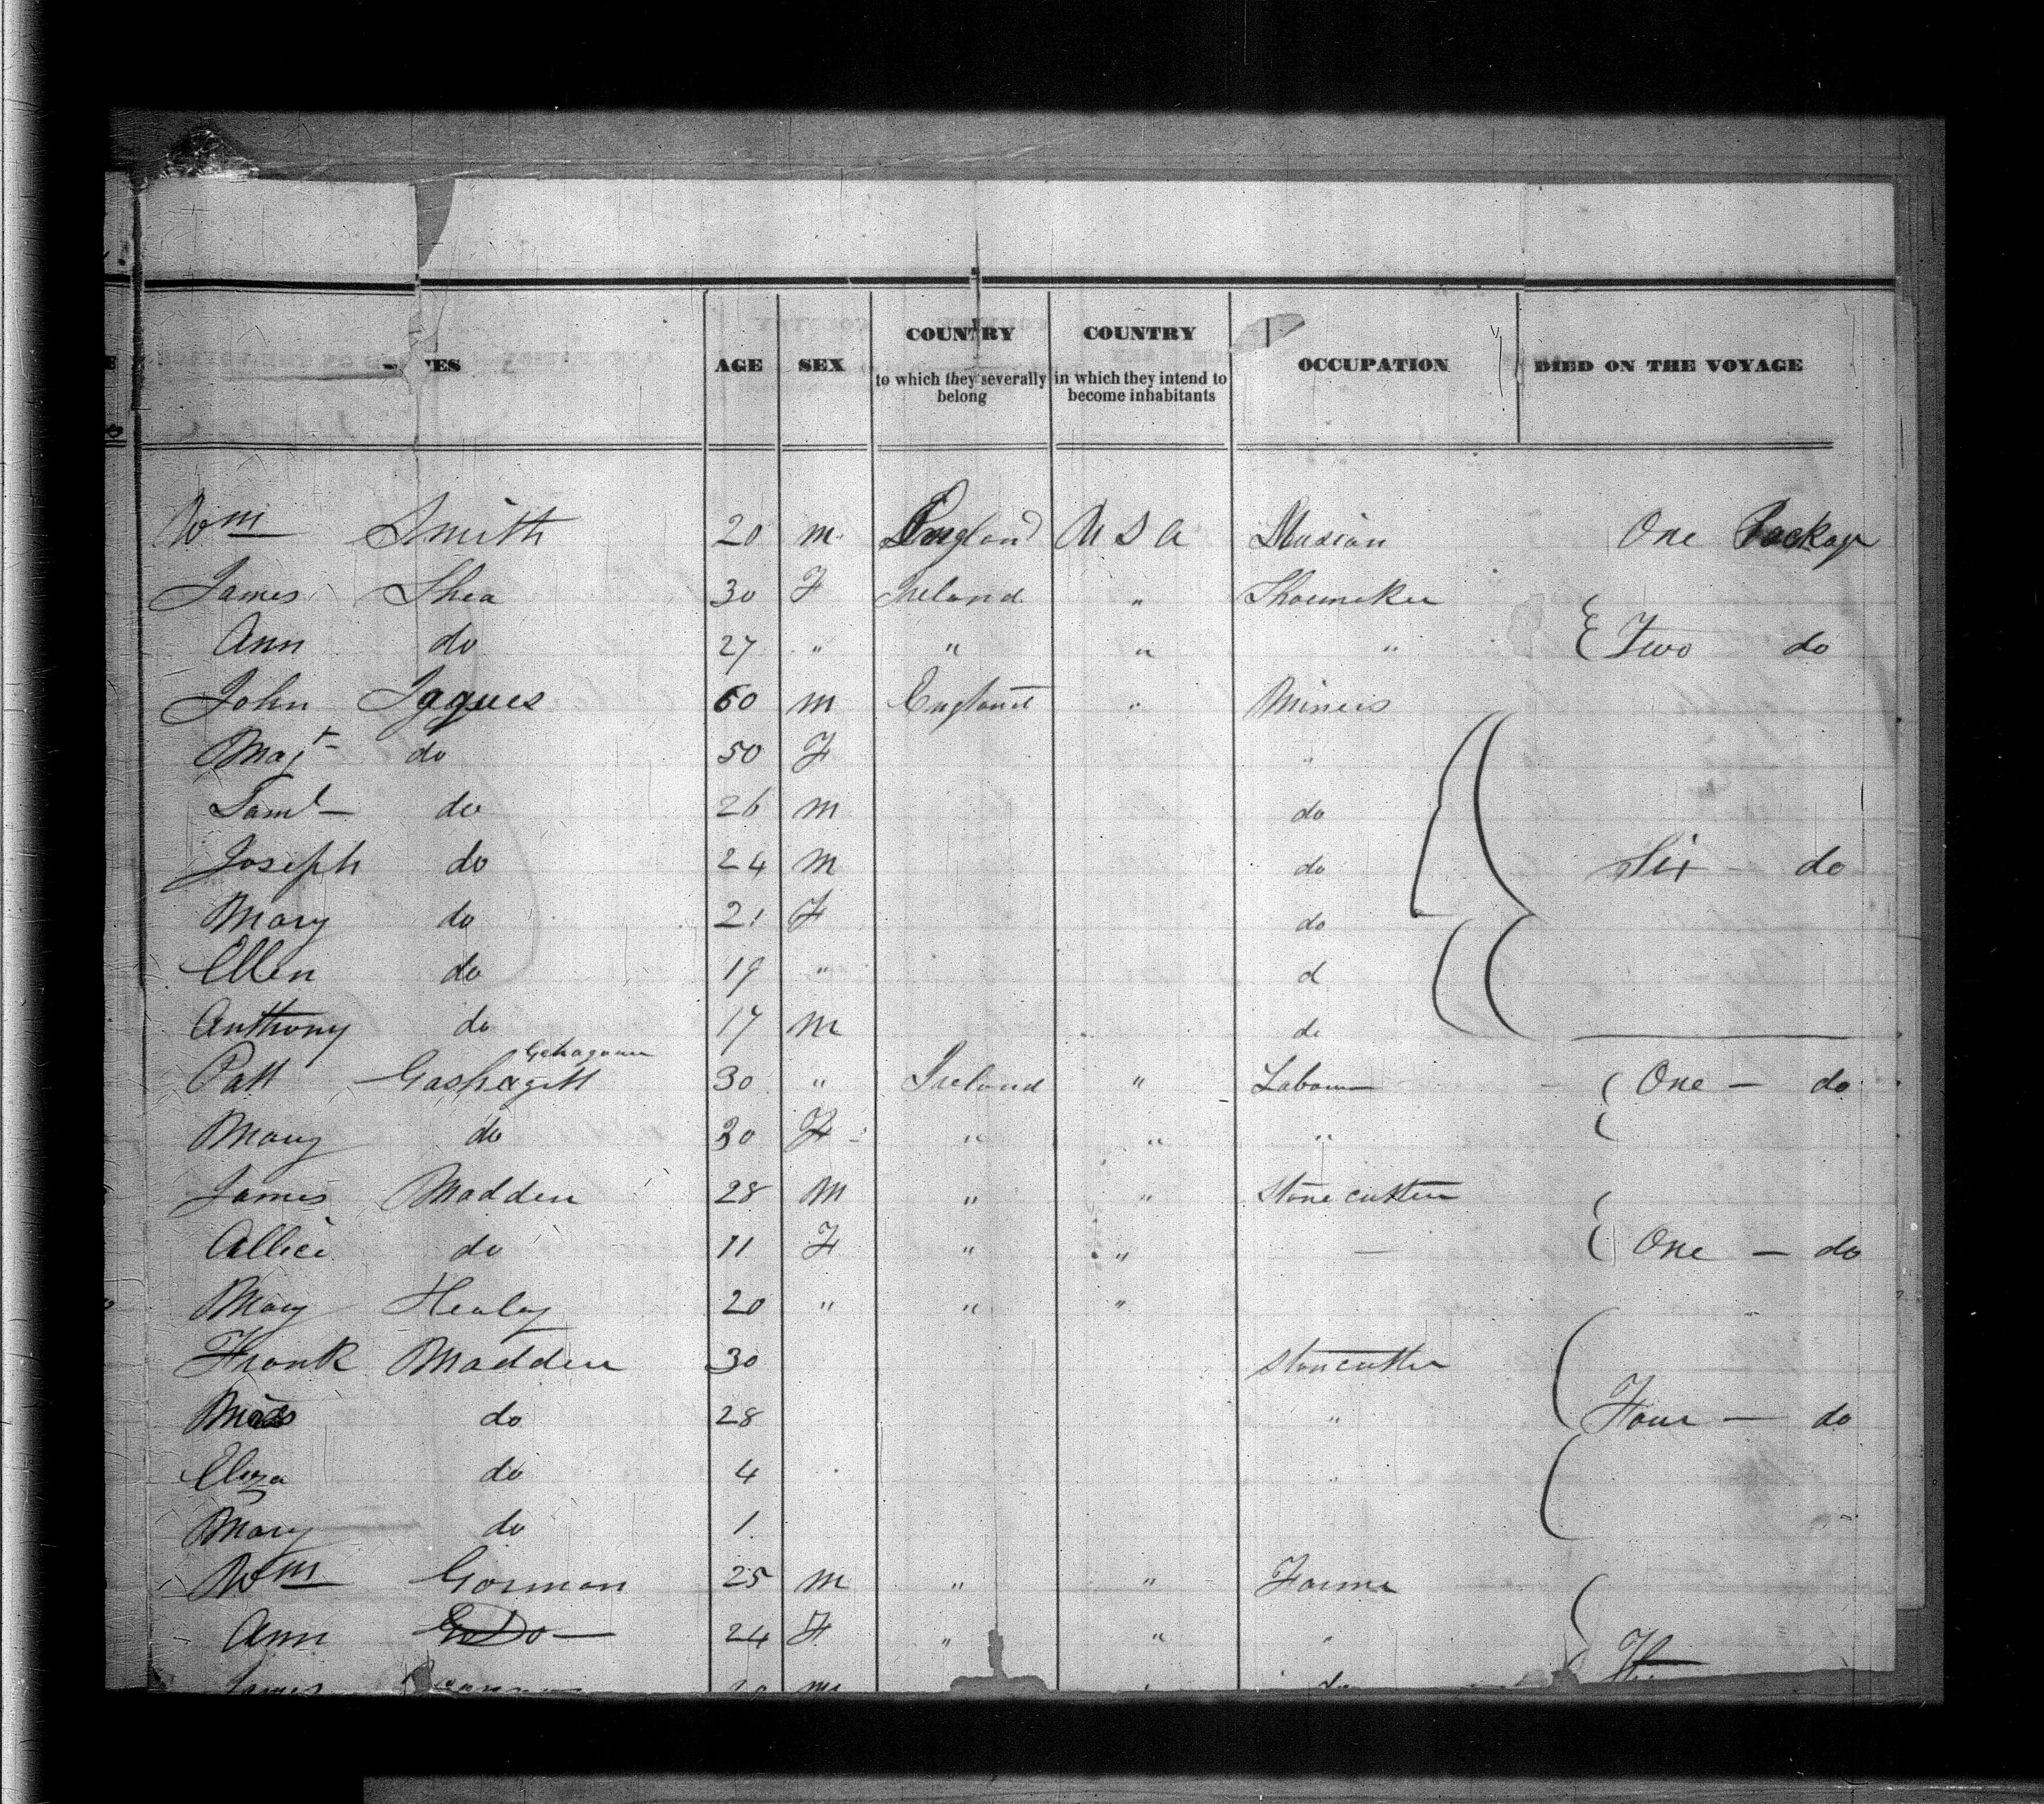 COUNTRY COUNTRY
AGE SEX OCCUPATION DIED ON THE VOYAGE
to which they severally in which they intend to
belong become inhabitants
Wm Smith 20 m England U S a One Package
James Shea 30 F Ireland " Shoemeker
Ann do 27 " " " " Two do
John Jaques 60 m England " Miners
Majt do 50 F "
Saml do 26 m do
Joseph do 24 m do Six do
Mary do 21 F do
Ellen do 19 " d
Anthony do 17 m do
Patt 30 " Ireland " Labour One do
Mary do 30 F " " "
James Madden 28 M " " Stone cutter
Allice do 11 F " " — One — do
Mary Healy 20 " " "
Frank Madden 30 stoncutter
do 28 " Four — do
Eliza do 4 "
Mary do 1
Wm Gorman 25 m " " Farmer
Ann Do 24 F " " "
James